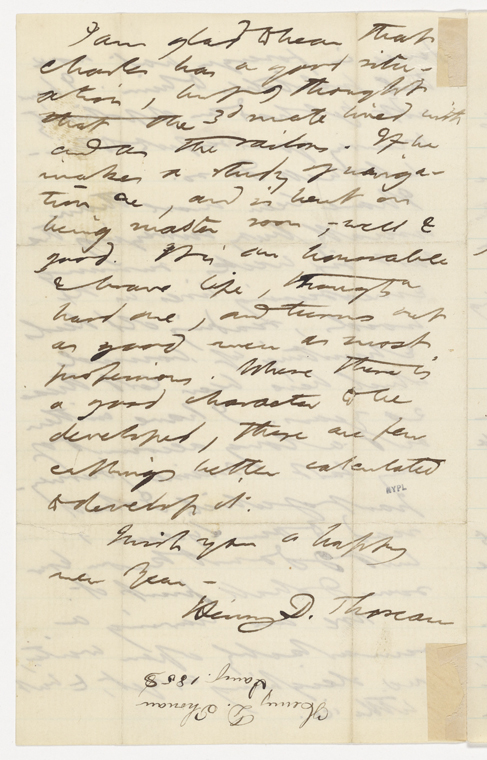 I am glad to hear that
Charles has a good situ-
ation, but I thought
that the 3d mate lived with
and as the sailors. If he
makes a study of naviga-
tion &c, and is bent on
being master soon, -well &
good. It is an honorable
& brave life, though a
hard one, and turns out
as good men as most
professions. Where there is
a good character to be
developed, there are few
callings better calculated
to develop it.
I wish you a happy
new Year-
Henry D. Thoreau
NYPL
Henry D. Thoreau
Jany. 1858